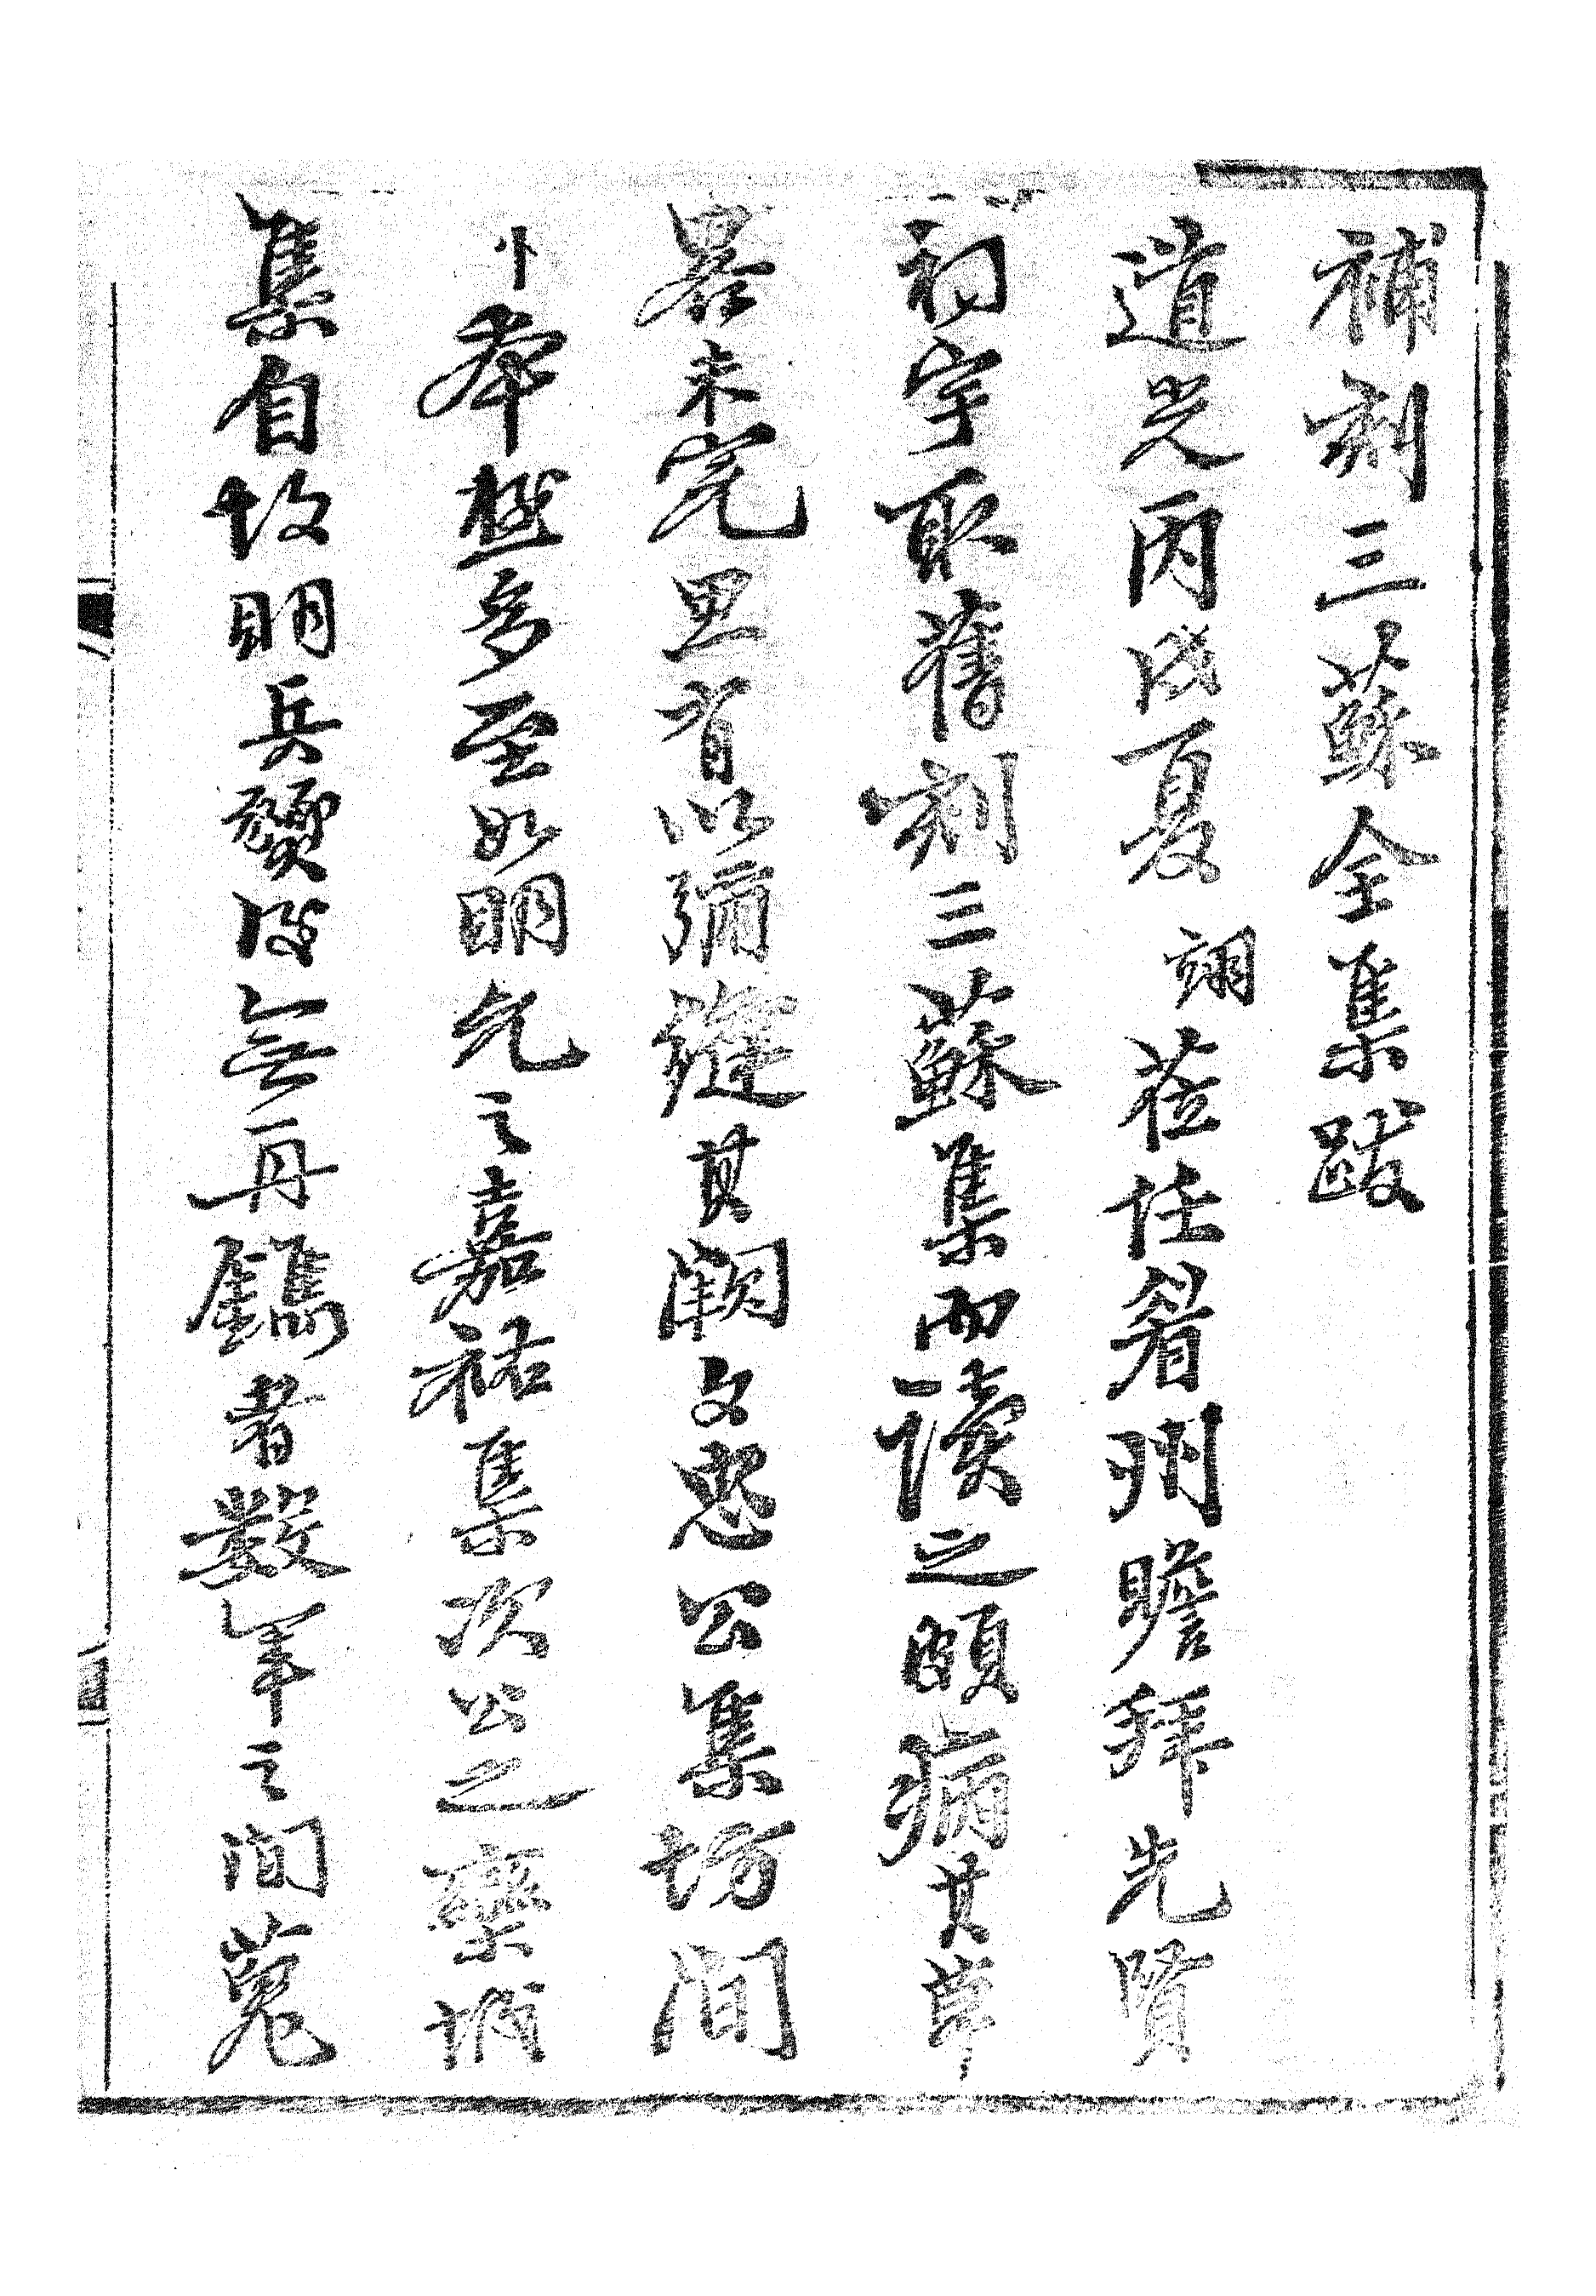 補刻三蘇全集跋
道光丙戌夏翊莅任眉州瞻拜先賢
祠宇取舊刻三蘇集而讀之頗病其草
畧未完思有以彌縫其闕文忠公集坊間
本甚多至如明允之嘉祐集次公之欒城
集自故明兵燹後無再鐫者數年之間蒐